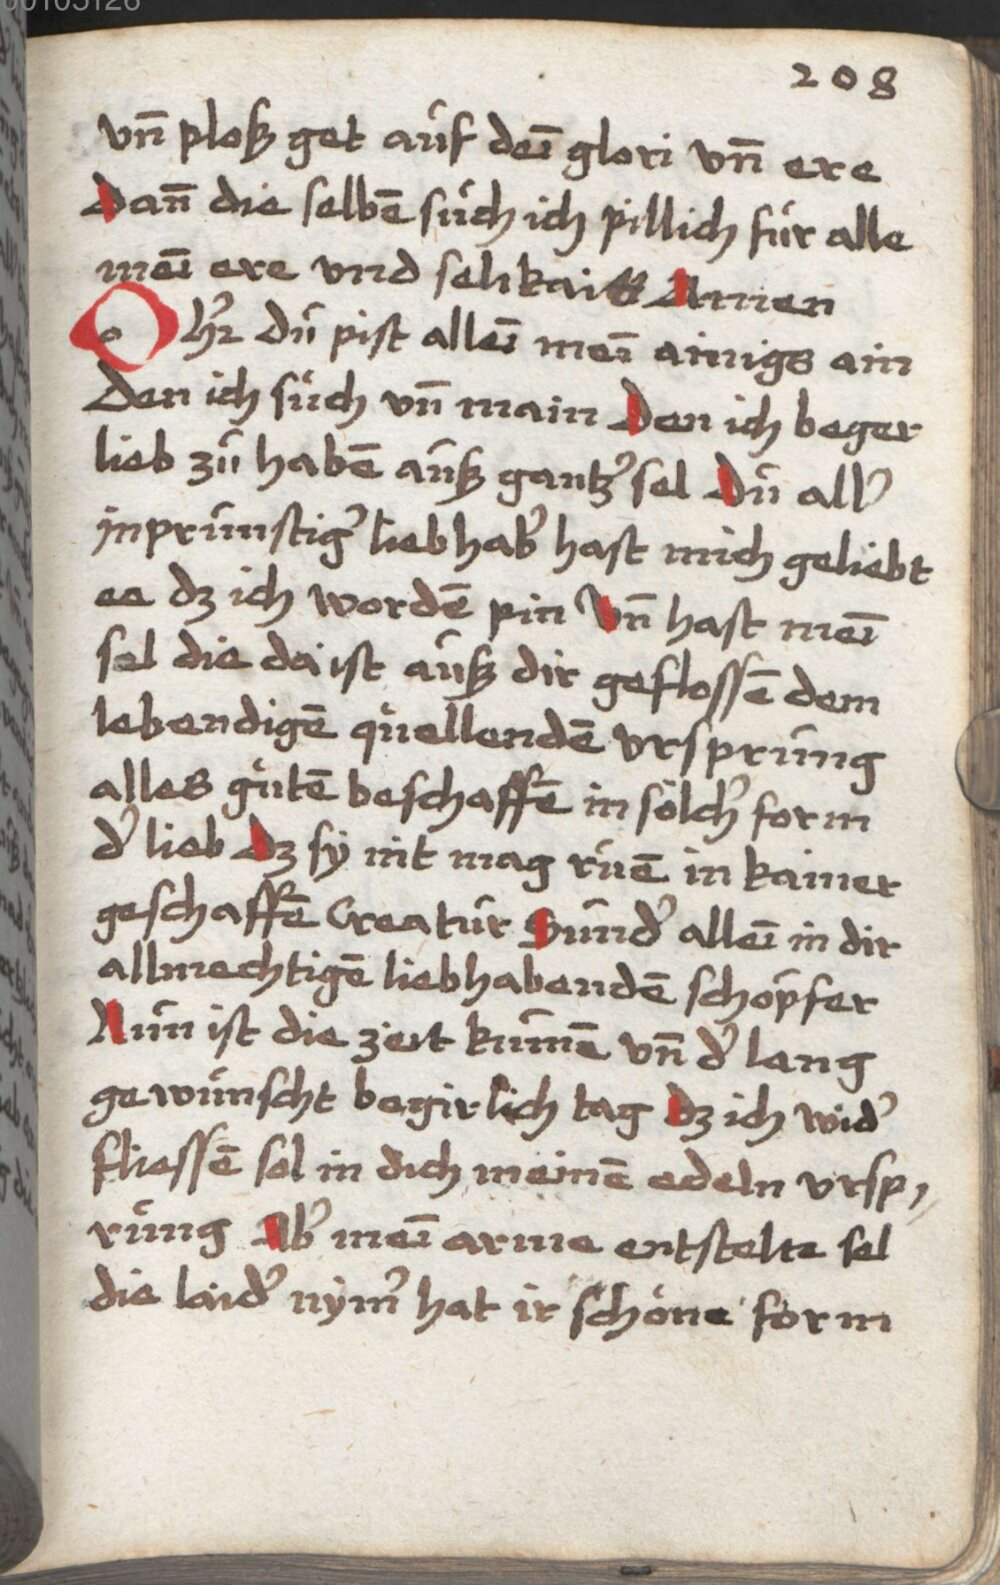 00105126
208
vn̄ ploß get aůf dēi glori vn̄ ere
Dan̄ die selbē sůch ich pillich fůr alle
mēi ere vnd selikait Amen
O hr̄ dů pist allēi mēi ainigs ain
Den ich sůch vn̄ main Den ich beger
lieb zů habē aůß gantz᷑ sel Dů all᷑
inprůnstig᷑ liebhab᷑ hast mich geliebt
ee dz ich wordē pin Vn̄ hast mēi
sel die da ist aůß dir geflossē dem
lebendigē quellendē vrsprůng
alles gůtē beschaffē in sölch᷑ form
d᷑ lieb Dz sy nit mag růē in kainer
geschaffē Creatůr Sůnd᷑ allēi in dir
allmechtigē liebhabendē schöpfer
Nůn ist die zeit kůmē vn̄ d᷑ lang
gewůnscht begirlich tag Dz ich wid᷑
fliessē sol in dich meinē edeln vrsp,
růng Ab᷑ mēi arme entstelte sel
die laid᷑ nym᷑ hat ir schöne form